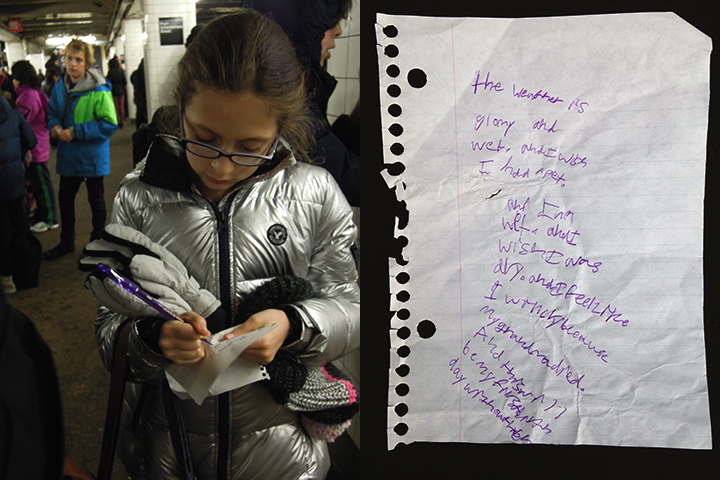 the weather is
glomy and
wet. and I wish
I had a pet.
and I'm
wet. and I
wish I was
dry. and I feel like
I
because
my grandma died.
And this will
be my first
day without her